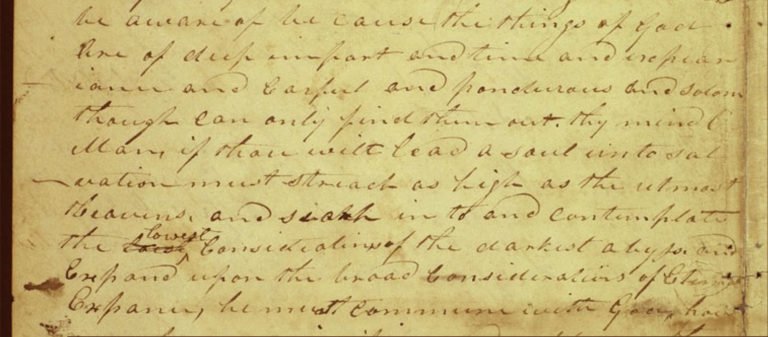 be aware of be cause the things of God
Are of deep import and time and expear
iance and Carful and pondurous and solom
though can only find them out. thy mind O
Man, if thou wilt lead a soul unto sal
vation must streach as high as the utmost
Heavens, and search in to and contemplate
the lowest Considerations of the darkest abyss, and
Expand upon the broad considerations of Eternal
Expance, he must commune with God, how